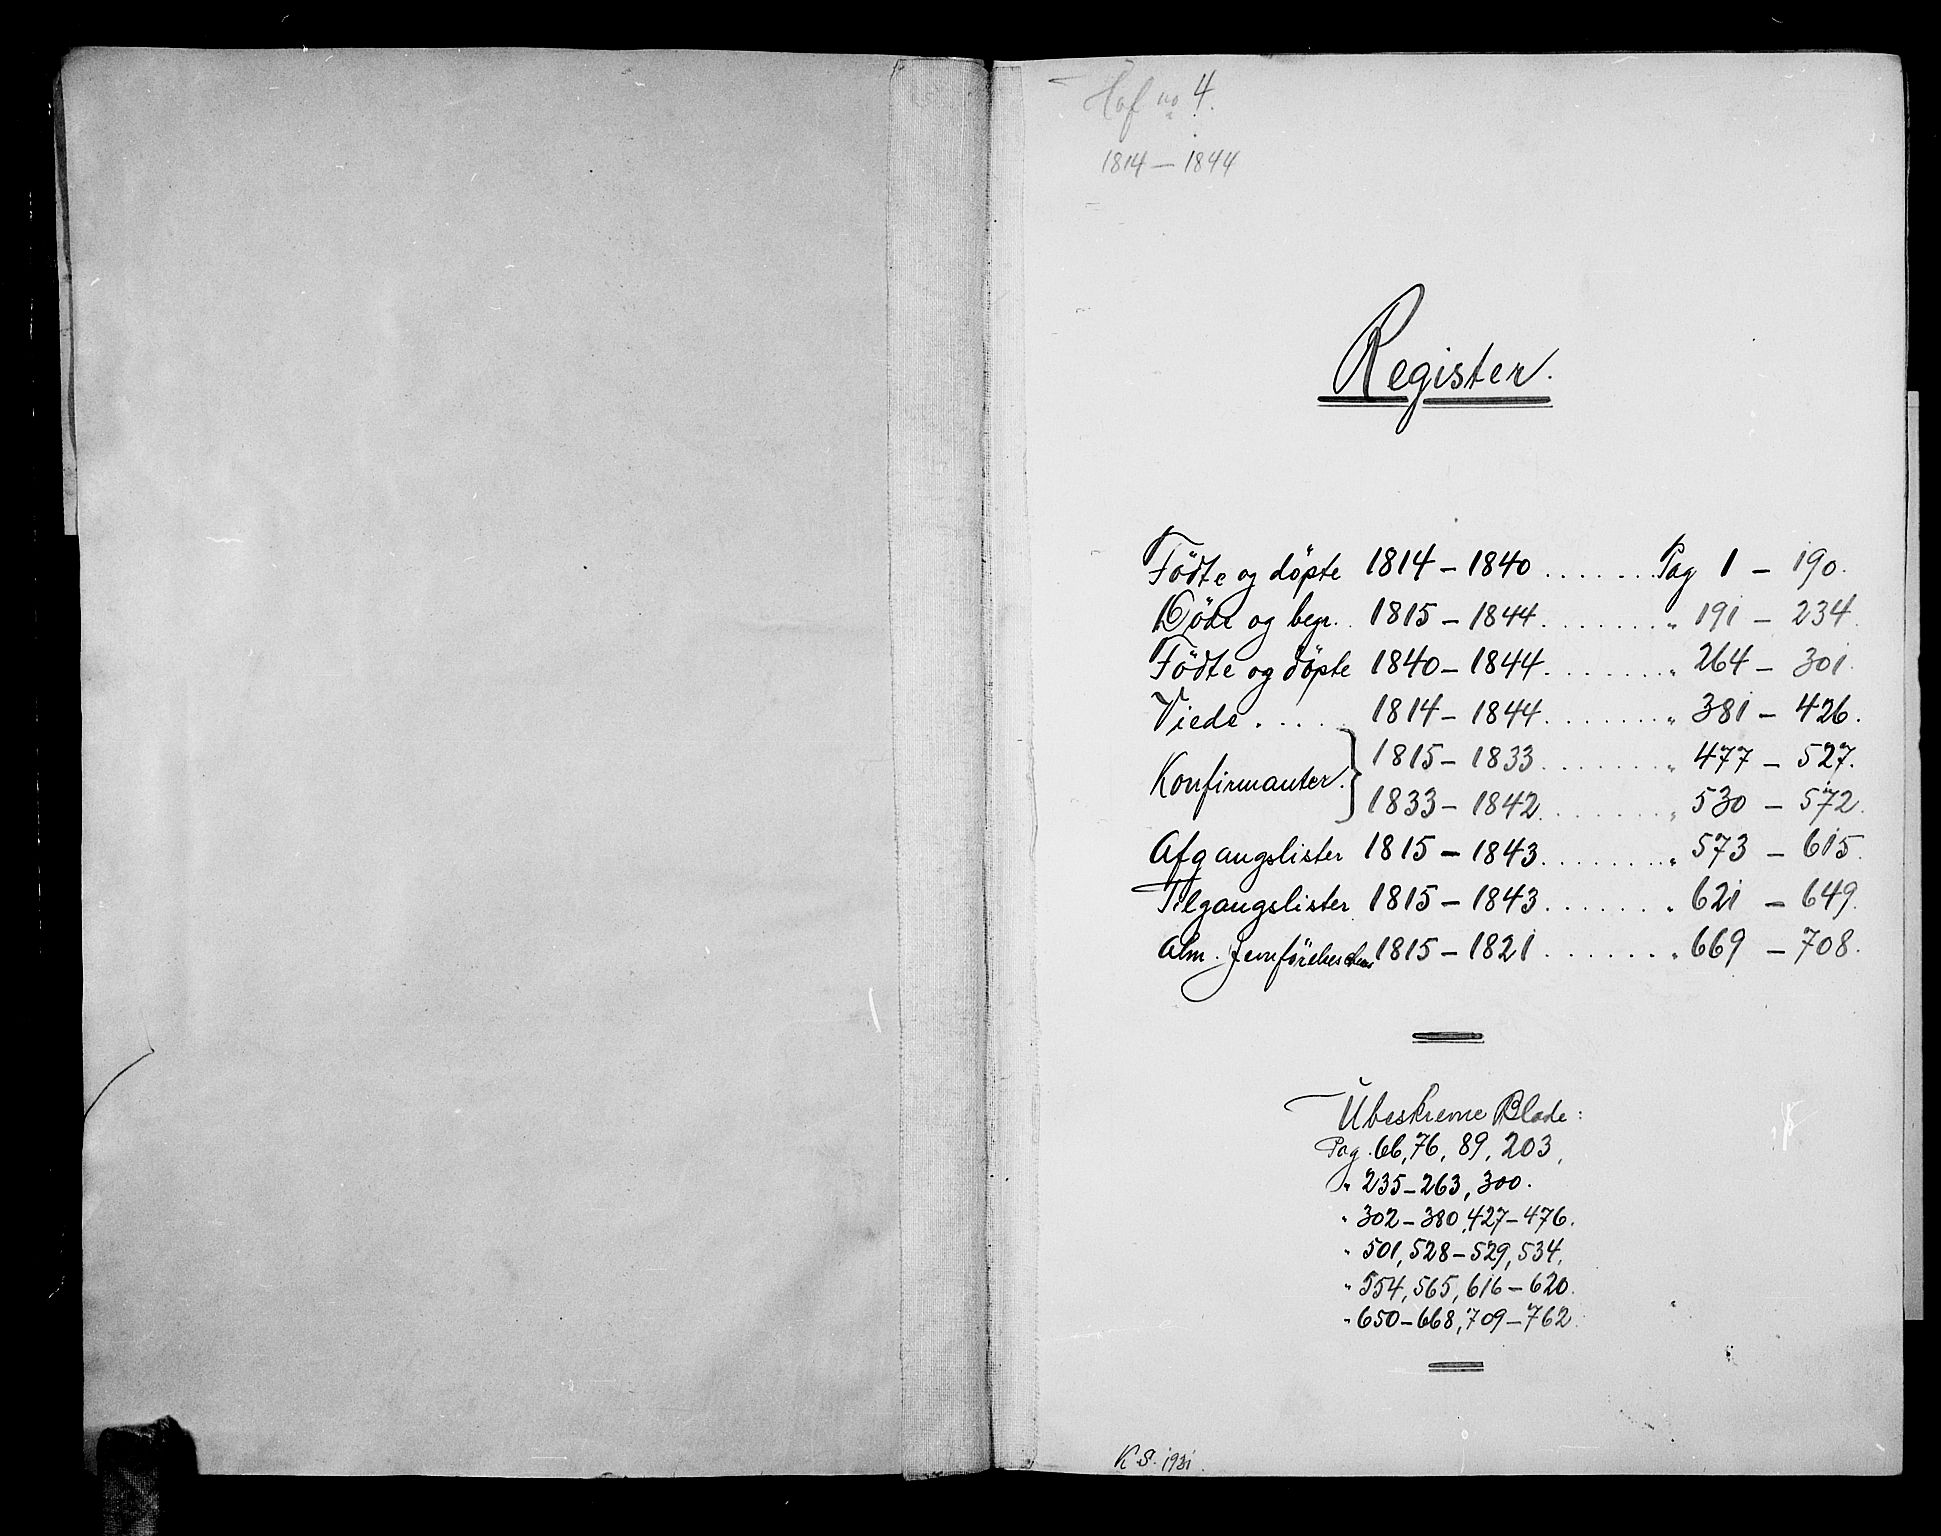 Hof no 4.
1814 — 1844
Register.
Födte og döpte 1814 – 1840 ....... Pag 1 – 190.
Döde og begr. 1815 – 1844. ....... " 191 – 234.
Födte og döpte 1840 – 1844. ....... " 264 – 301.
Viede ..... 1814 – 1844. ....... " 381 – 426.
Konfirmanter. } 1815 – 1833 ....... " 477 – 527.
1833 – 1842. ....... " 530 – 572.
Afgangslister 1815 – 1843. ....... " 573 – 615.
Tilgangslister 1815 – 1843. ....... " 621 – 649.
Alm. 1815 – 1821 ....... " 669 – 708.
Ubeskrevne Blade:
Pag. 66, 76, 89, 203,
" 235–263, 300.
" 302–380, 427–476.
" 501, 528–529, 534,
" 554, 565, 616–620.
" 650–668, 709–762.
K S. 1931.